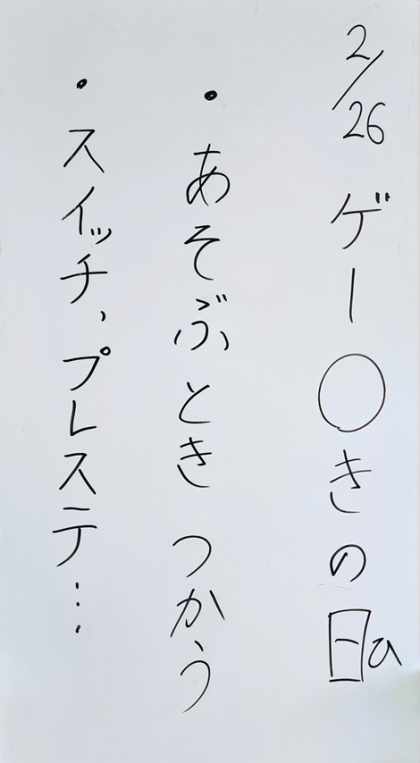 2/26 ゲー○きの日ひ
・あそぶとき つかう
・スイッチ、プレステ…